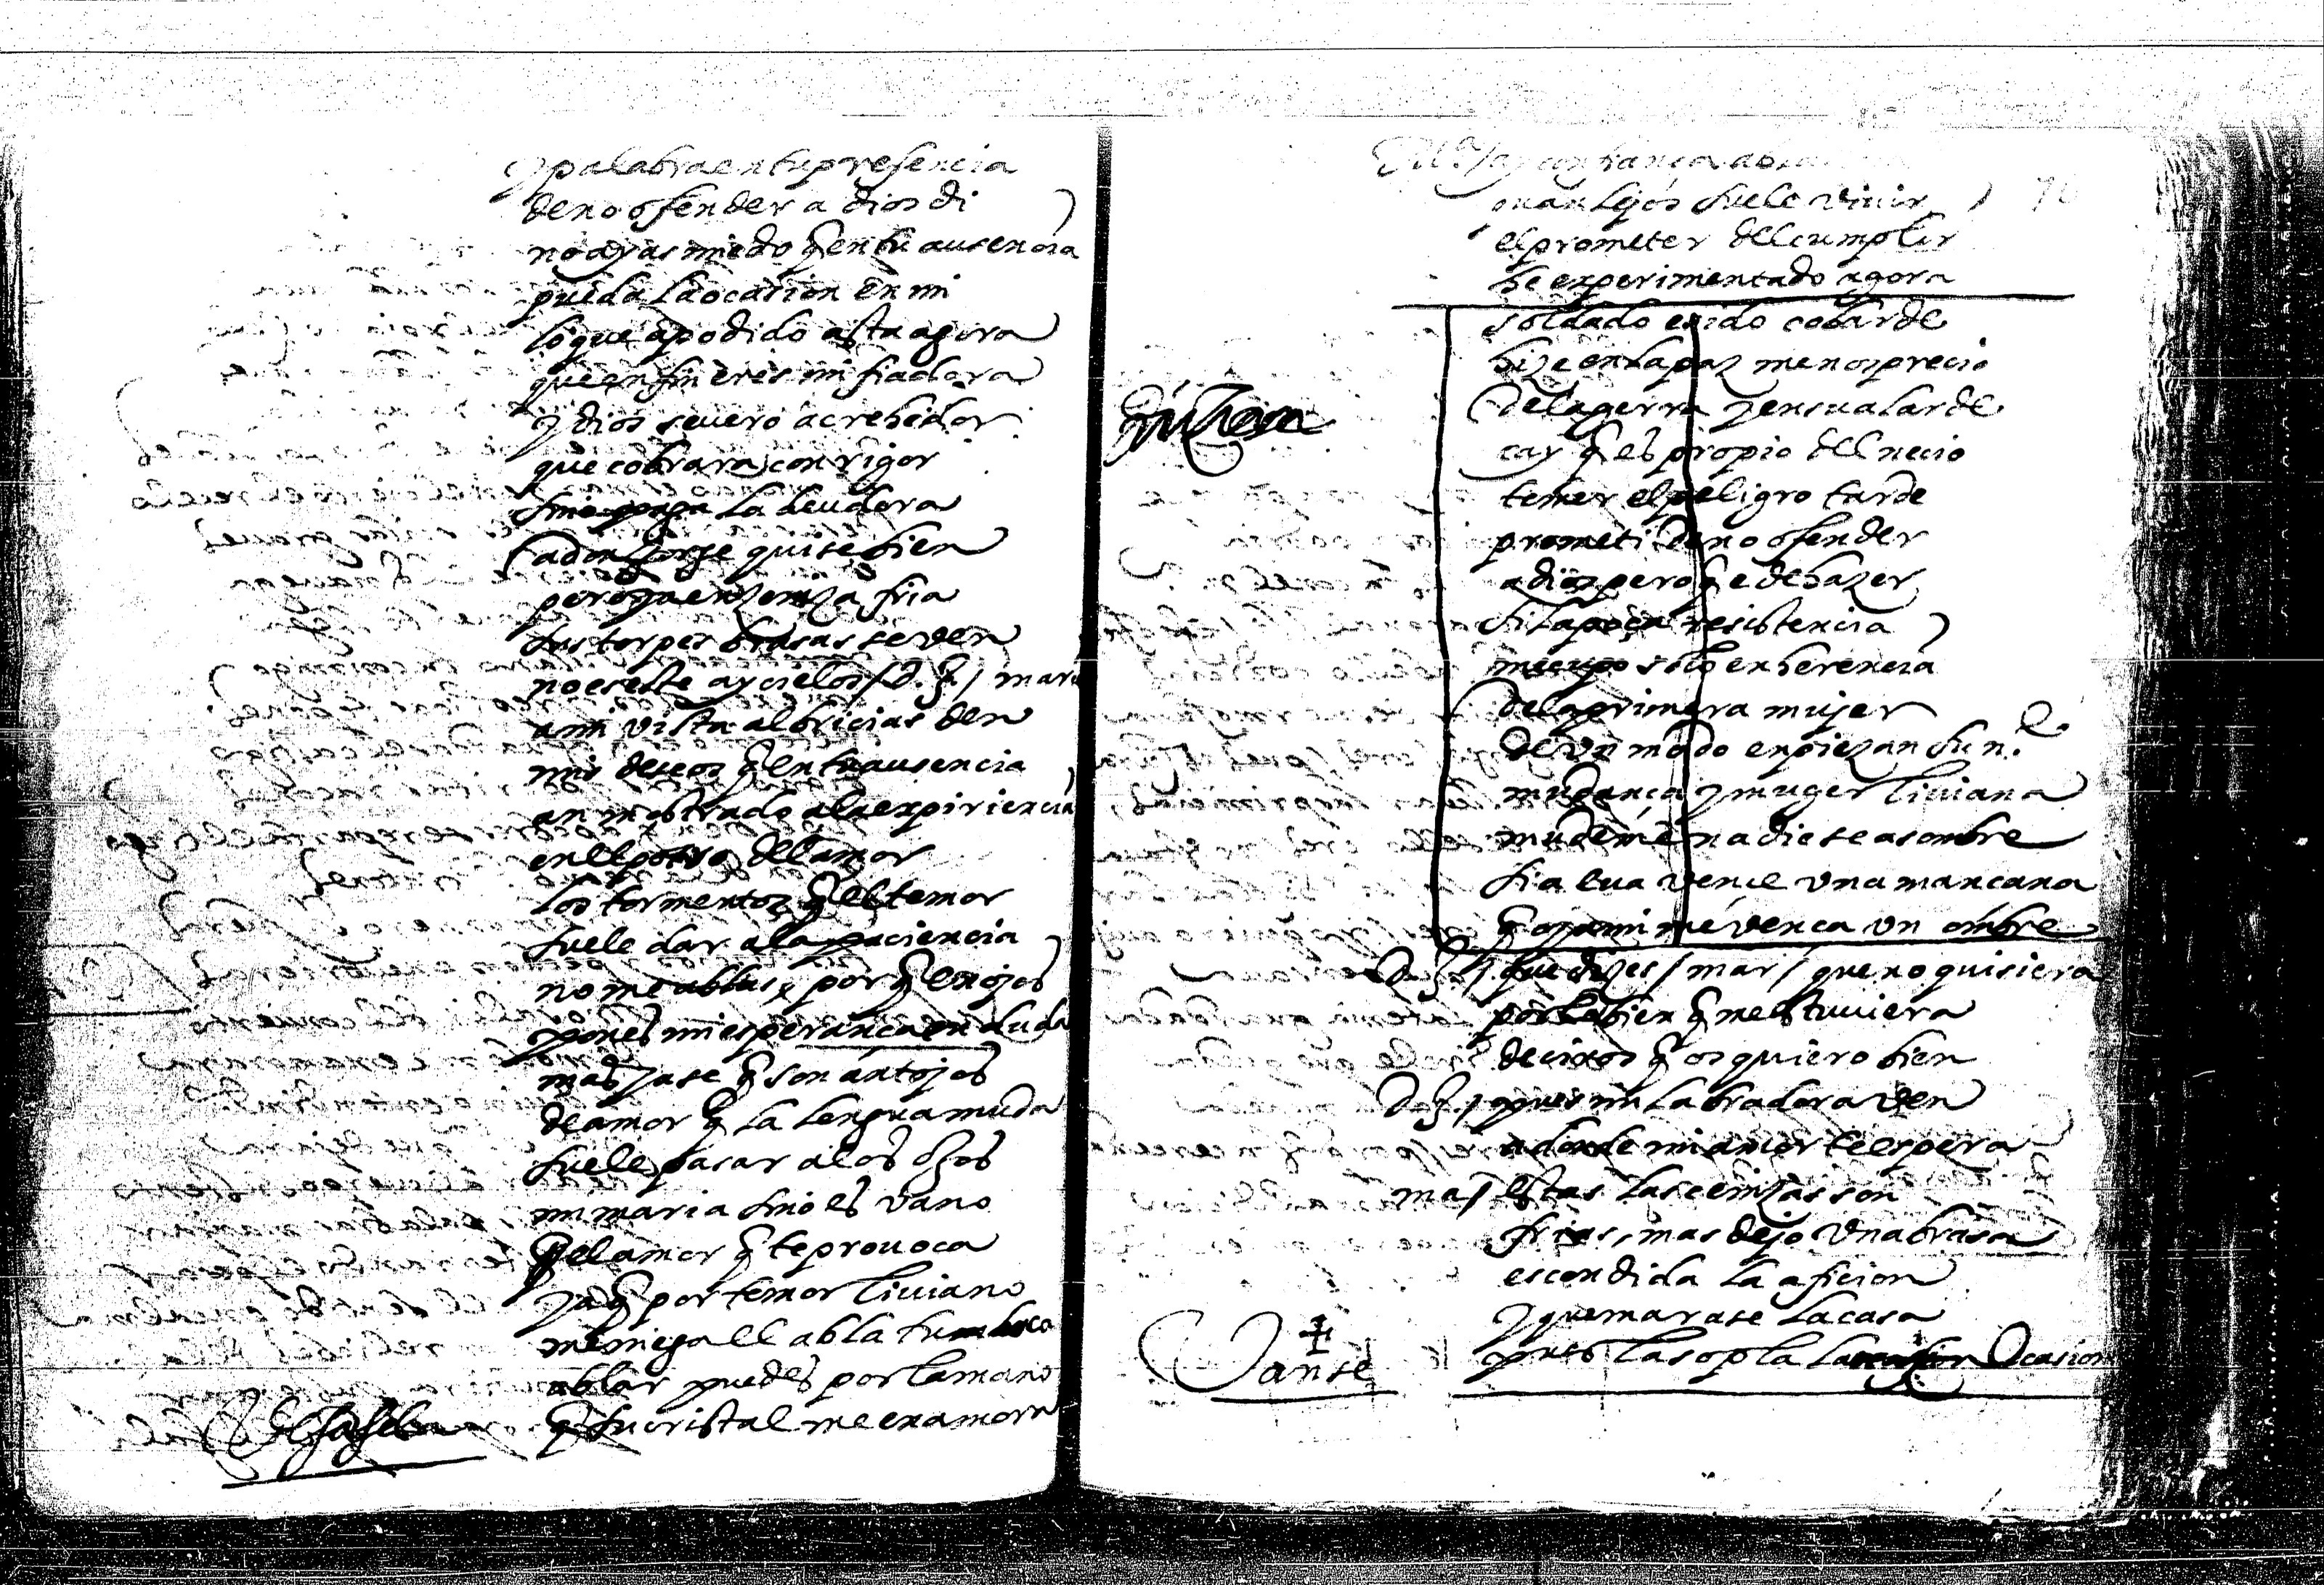 y palabra en tu presencia
de no ofender a dios di
no ayas miedo q̃ en tu ausencia
pueda la ocasion en mi
lo que a podido asta agora
que en fin eres mi fiadora
y dios seuero acrehedor
que cobrara con rigor
si no paga la deudora
a don Jorge quise bien
pero ya en zeniza fria
sus torpes brasas se ven
no es este ay cielos / d. J. / mari
a mi vista albricias den
mis deseos q̃ en tu ausencia
an mostrado a la expiriencia
en el potro del amor
los tormentos q̃ el temor
suele dar a la paciencia
no me ablas por q̃ enojos
pones mi esperança en duda
mas ya se q̃ son antojos
de amor q̃ la lengua muda
suele pasar a los ojos
mi maria si no es vano
el amor q̃ te prouoca
ya q̃ por temor liuiano
me niega el abla tu boca
ablar puedes por la mano
q̃ su cristal me enamora
vesasela
quan lejos suele viuir
el prometer del cumplir
he experimentado agora
soldado e sido cobarde
hize en la paz menosprecio
de la gerra y en su alarde
cay q̃ es propio del necio
temer el peligro tarde
prometi de no ofender
a dios pero q̃ e de hazer
si la poca resistencia
me cupo solo en herencia
de la primera mujer
de vn modo enpiezan su n.e
mudança y muger liuiana
mudeme nadie se asombre
si a eua vence vna mançana
q̃ oy a mi me vença vn ombre
d. J. / que dizes / mar / que no quisiera
por lo bien q̃ me estuuiera
deciros q̃ os quiero bien
d. J. / pues mi labradora ven
adonde mi amor te espera
ma / estas las cenizas son
frias, mas dejo vna brasa
escondida la aficion
y quemarase la casa
pues la sopla la ocasion
Vanse